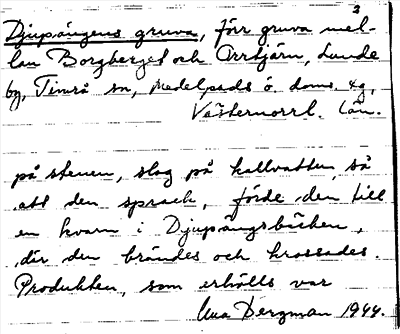 3
Djupängens gruva, förr gruva mel-
lan Borgberget och Orrtjärn, Lunde
by, Timrå sn, Medelpads ö. doms. tg,
Västernorrl. län.
på stenen, slog på kallvatten, så
att den sprack, förde den till
en kvarn i Djupängsbäcken,
där den brändes och krossades.
Produkten, som erhölls var
Bergman 1944.